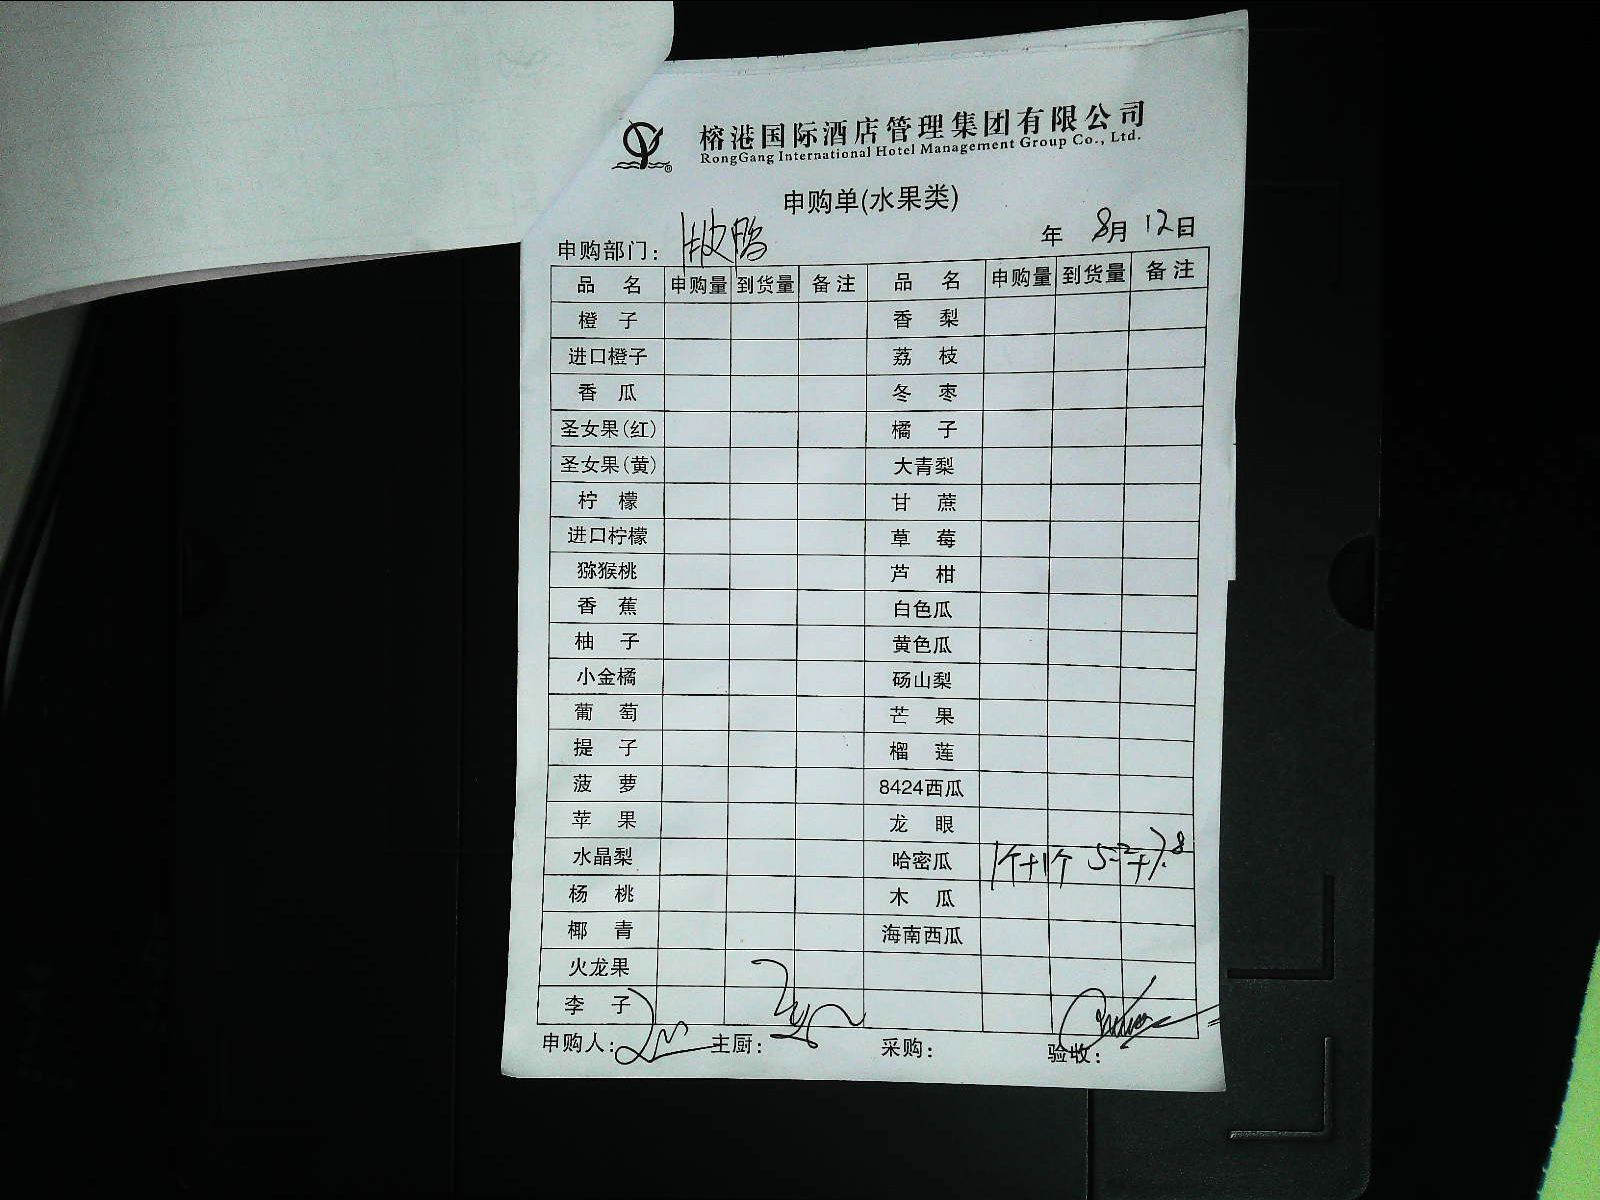 榕港国际酒店管理集团有限公司
RongGang International Hotel Management Group Co., Ltd.
申购单(水果类)
申购部门: 年 8月 12日
品 名 申购量 到货量 备注 品 名 申购量 到货量 备注
橙 子 香 梨
进口橙子 荔 枝
香 瓜 冬 枣
圣女果(红) 橘 子
圣女果(黄) 大青梨
柠 檬 甘 蔗
进口柠檬 草 莓
猕猴桃 芦 柑
香 蕉 白色瓜
柚 子 黄色瓜
小金橘 砀山梨
葡 萄 芒 果
提 子 榴 莲
菠 萝 8424西瓜
苹 果 龙 眼
水晶梨 哈密瓜 1个+1个
杨 桃 木 瓜
椰 青 海南西瓜
火龙果
李 子
申购人: 主厨: 采购: 验收: